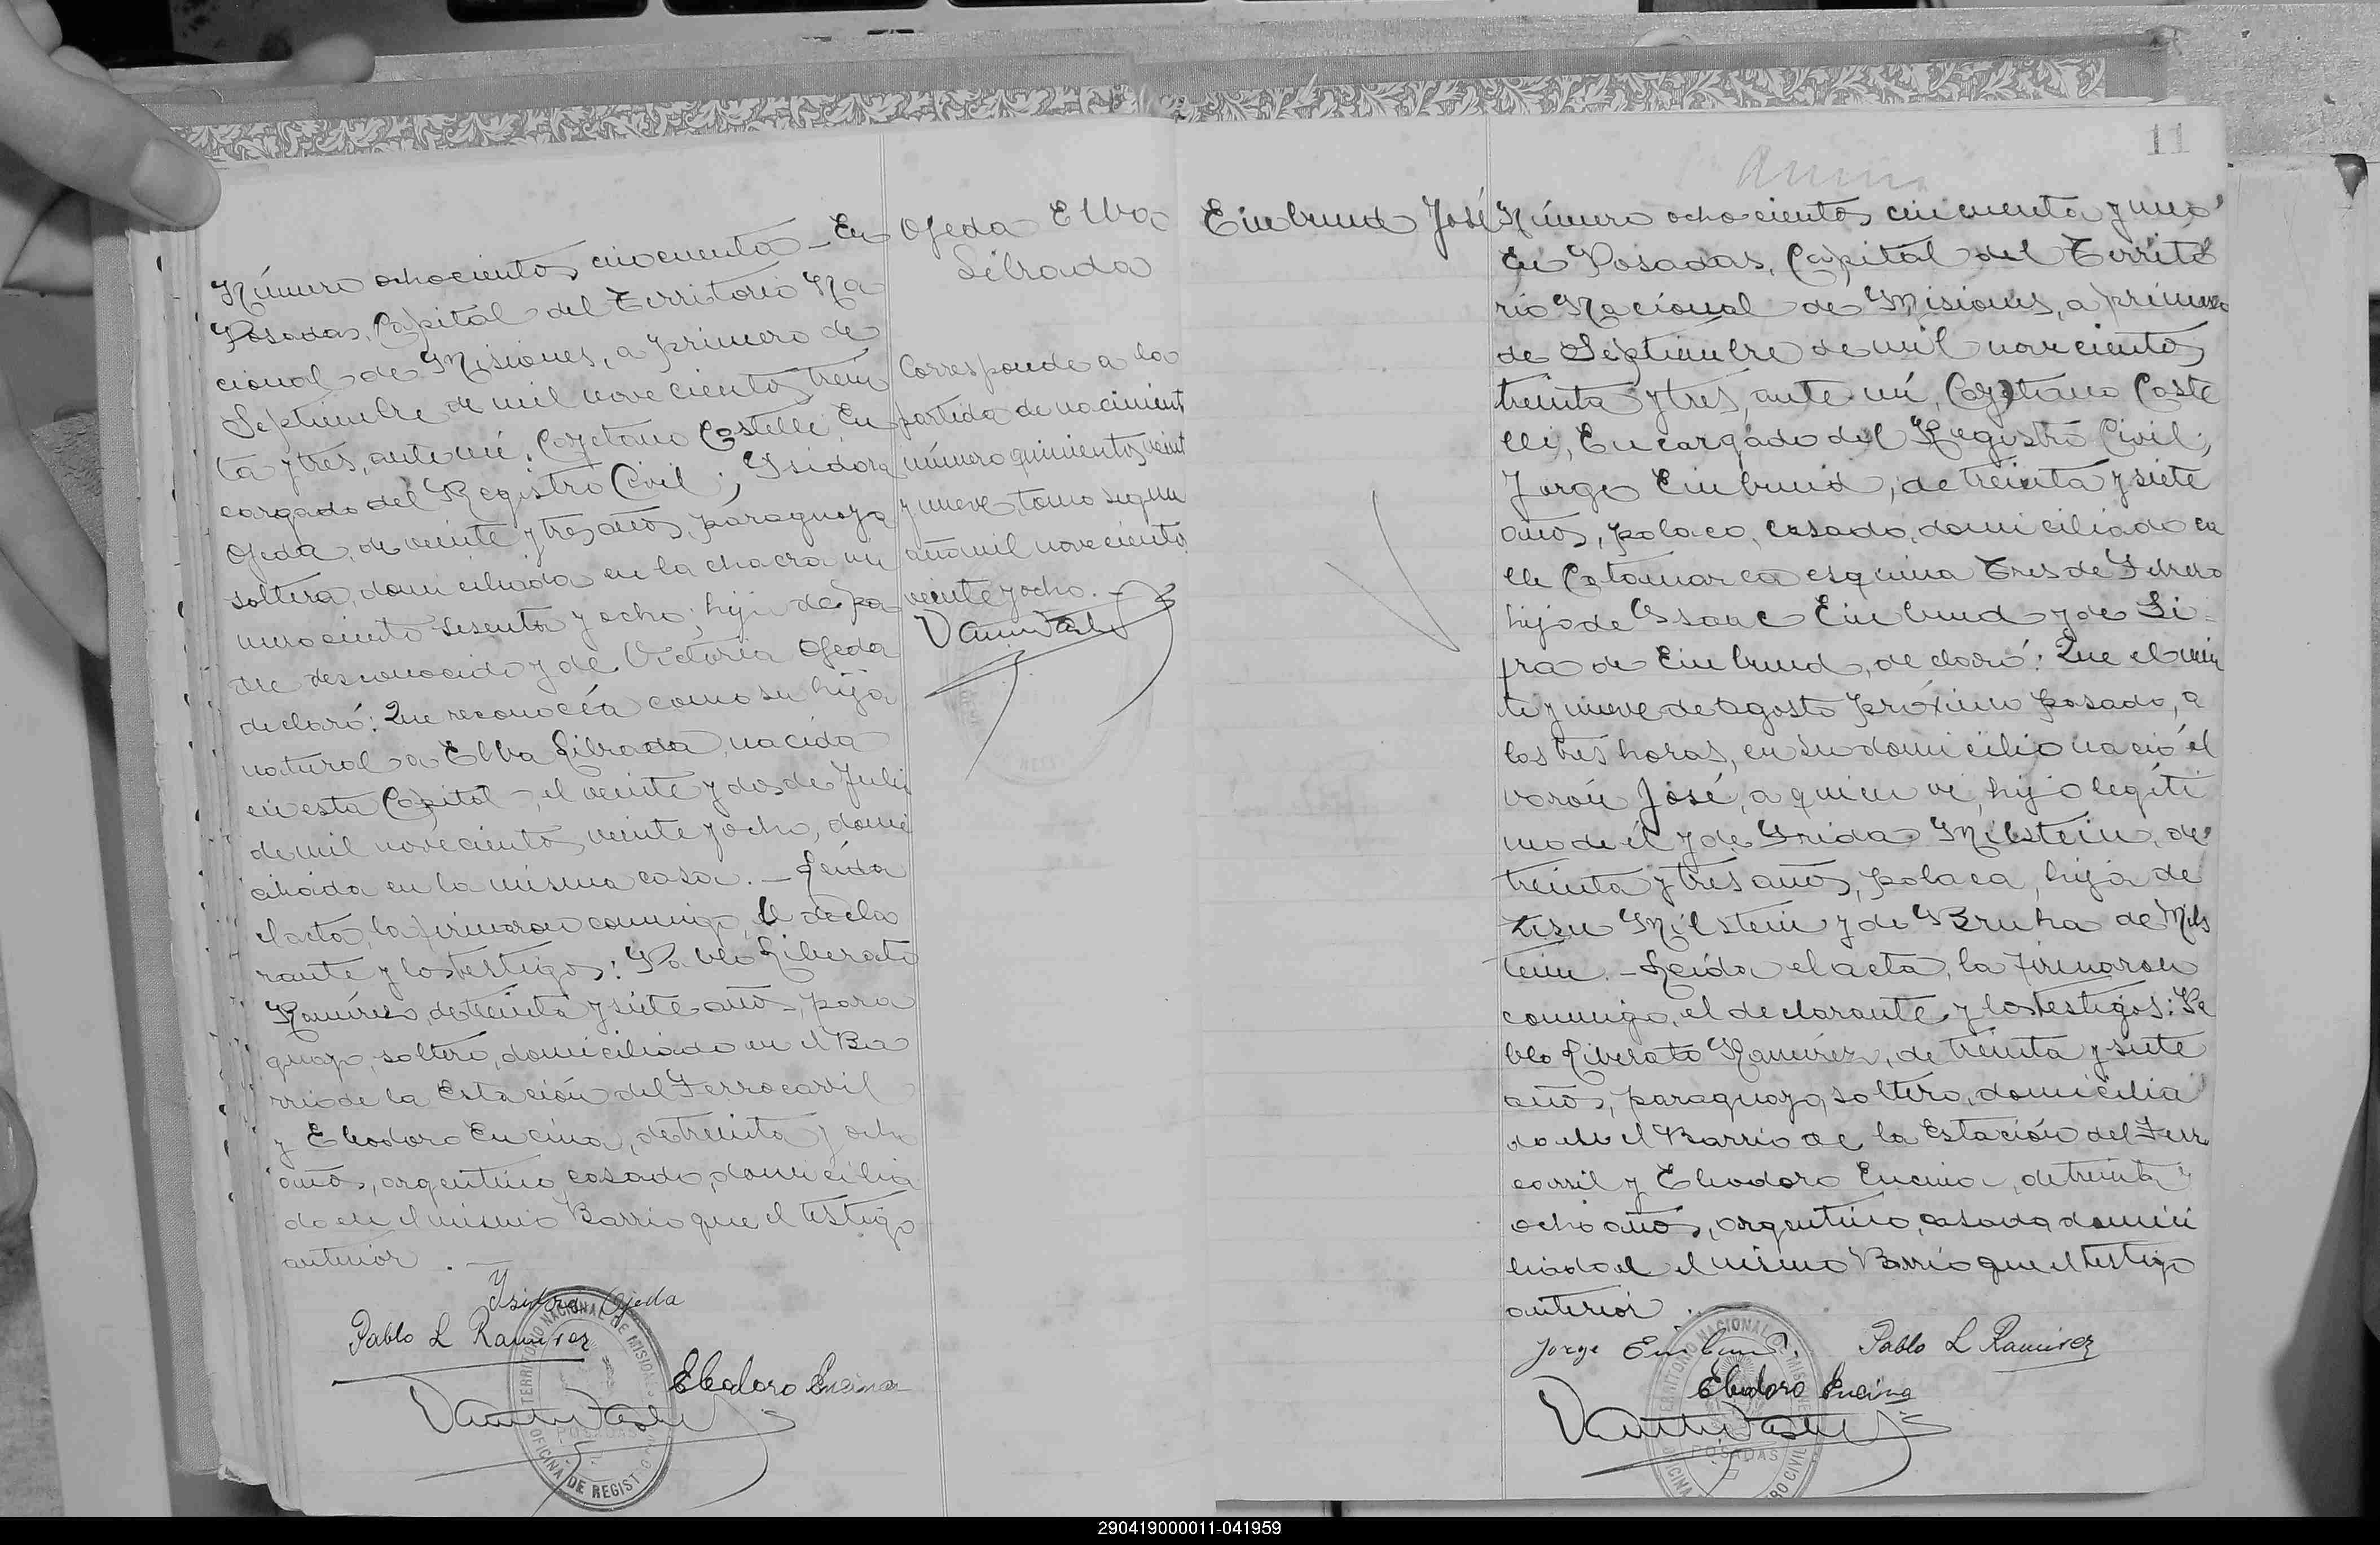 Número ochocientos cincuenta - En
Posadas, Capital del Territorio Na
cional de Misiones, a primero de
Septiembre de mil novecientos trein
ta y tres, ante mí, Cayetano Castelli En
cargado del Registro Civil; Isidora
Ojeda, de veinte y tres años, paraguaya
soltera, domiciliada en la chacra nú
mero ciento sesenta y ocho; hija de pa
dre desconocido y de Victoria Ojeda
declaró: Que reconocía como su hija
natural a Elba Librada, nacida
en esta Capital, el veinte y dos de Julio
de mil novecientos veinte y ocho, domi
ciliada en la misma casa. - Leída
el acta, la firmaron conmigo, la decla
rante y los testigos: Pablo Liberato
Ramírez, de treinta y siete años, para
guayo, soltero, domiciliado en el Ba
rrio de la Estación del Ferrocarril
y Eleodoro Encina, de treinta y ocho
años, argentino, casado, domicilia
do en el mismo Barrio que el testigo
anterior.
Isidora Ojeda
Pablo L Ramirez
Eleodoro Encina
TERRITORIO NACIONAL DE MISIONES
POSADAS
OFICINA DE REGIST
Ojeda Elba
Librada
Corresponde a la
partida de nacimient
número quinientos veint
y nueve, tomo segun
año mil novecientos
veinte y ocho. -
11
Einbrund José
Número ochocientos cincuenta y uno
En Posadas, Capital del Territo
rio Nacional de Misiones, a primero
de Septiembre de mil novecientos
treinta y tres, ante mí, Cayetano Caste
lli, Encargado del Registro Civil;
Jorge Einbrund, de treinta y siete
años, polaco, casado, domiciliado ca
lle Catamarca esquina Tres de Febrero
hijo de Isaac Einbrund y de Si
fra de Einbrund, declaró: Que el vein
te y nueve de Agosto próximo pasado, a
las tres horas, en su domicilio nació el
varón José, a quien vi, hijo legíti
mo de él y de Frida Milstein, de
treinta y tres años, polaca, hija de
Milstein y de Bruha de Mils
tein. - Leída el acta, la firmaron
conmigo, el declarante y los testigos: Pa
blo Liberato Ramírez, de treinta y siete
años, paraguayo, soltero, domicilia
do en el Barrio de la Estación del Ferro
carril y Eleodoro Encina, de treinta y
ocho años, argentino, casado, domici
liado en el mismo Barrio que el testigo
anterior.
Jorge Einbrund.
Pablo L Ramirez
Eleodoro Encina
POSADAS
290419000011-041959